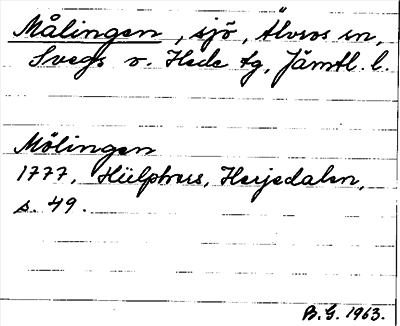 Målingen, sjö, Älvros sn,
Svegs o. Hede tg, Jämtl. l.
Mölingen
1777, Hülphers, Herjedalen,
s. 49.
B.G. 1963.